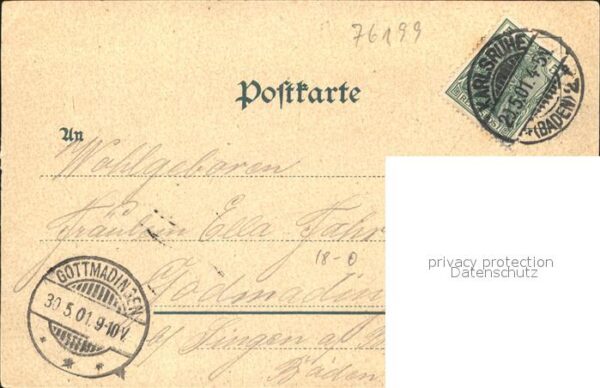 76199
KARLSRUHE
5.01. 4-5
(BADEN) 2
Postkarte
An
Wohlgeboren
Fräulein Ella Fahr
privacy protection
Datenschutz
18-0
Gottmadin
GOTTMADINGEN
30.5.01. 9-10V.
b/ Singen a/
Baden